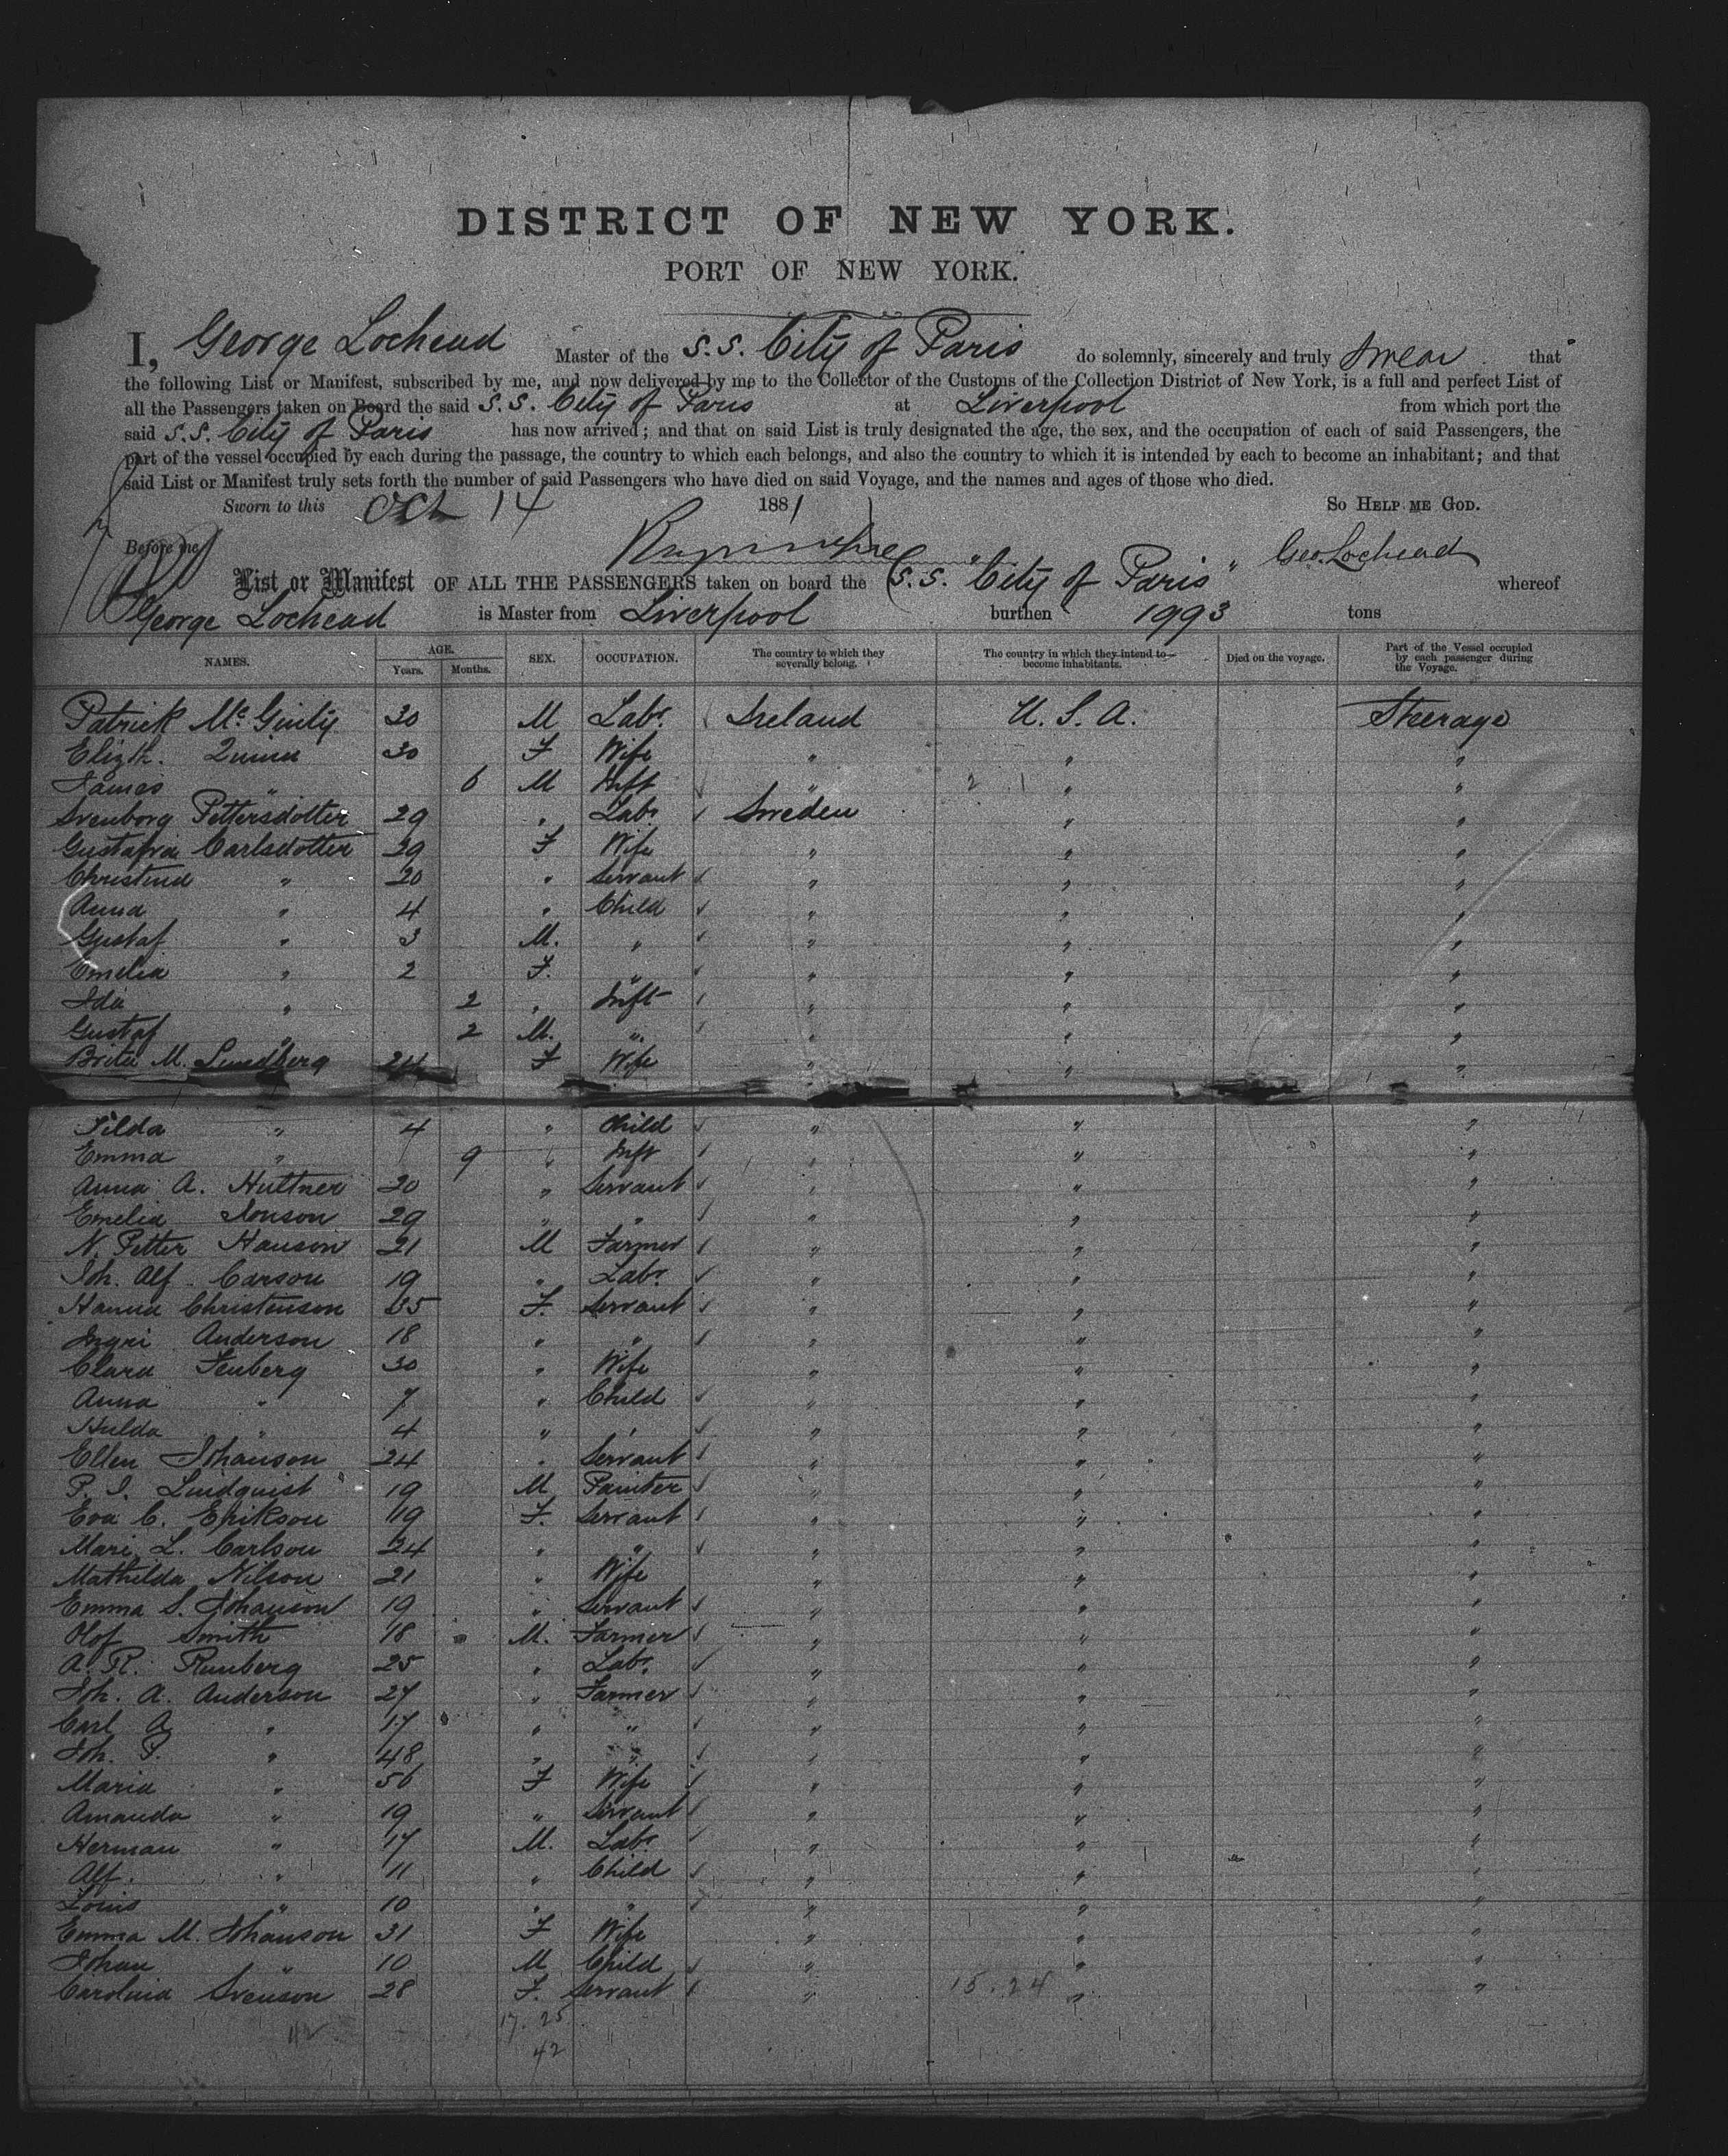 DISTRICT OF NEW YORK.
PORT OF NEW YORK.
I, George Lochead Master of the S.S. City of Paris do solemnly, sincerely and truly swear that
the following List or Manifest, subscribed by me, and now delivered by me to the Collector of the Customs of the Collection District of New York, is a full and perfect List of
all the Passengers taken on Board the said S.S. City of Paris at Liverpool from which port the
said S.S. City of Paris has now arrived; and that on said List is truly designated the age, the sex, and the occupation of each of said Passengers, the
part of the vessel occupied by each during the passage, the country to which each belongs, and also the country to which it is intended by each to become an inhabitant; and that
said List or Manifest truly sets forth the number of said Passengers who have died on said Voyage, and the names and ages of those who died.
Sworn to this Oct 14 1881 So HELP ME GOD.
Before me Geo. Lochead
List or Manifest OF ALL THE PASSENGERS taken on board the S.S. "City of Paris" whereof
George Lochead is Master from Liverpool burthen 1993 tons
NAMES. AGE. Years. Months. SEX. OCCUPATION. The country to which they severally belong. The country in which they intend to become inhabitants. Died on the voyage. Part of the Vessel occupied by each passenger during the Voyage.
Patrick Mc Ginty 30 M Labr. Ireland U.S.A. Steerage
Elizth. Quinn 30 F Wife " " "
James " 6 M Inft " 2 1 " "
Svenborg Pettersdotter 29 " Labr Sweden " "
Gustafva Carlsdotter 29 F Wife " " "
Christina " 20 " Servant " " "
Anna " 4 " Child " " "
Gustaf " 3 M. " " " "
Emelia " 2 F. " " " "
Ida " 2 " Inft " " "
Gustaf " 2 M. " " " "
Brita M. Lundberg 24 F Wife " " "
Tilda " 4 " Child " " "
Emma " 9 " Inft " " "
Anna A. Hultner 20 " Servant " " "
Emelia Jonson 29 " " " " "
N. Petter Hanson 21 M Farmer " " "
Joh. Alf. Carson 19 " Labr. " " "
Hanna Christenson 35 F. Servant " " "
Ingri Anderson 18 " " " " "
Clara Fenberg 30 " Wife " " "
Anna " 7 " Child " " "
Hulda " 4 " " " " "
Ellen Johanson 24 " Servant " " "
P. J. Lindquist 19 M Painter " " "
Eva C. Erikson 19 F. Servant " " "
Mari L. Carlson 24 " " " " "
Mathilda Nilson 21 " Wife " " "
Emma S. Johanson 19 " Servant " " "
Olof Smith 18 M. Farmer " " "
A. R. Runberg 25 " Labr. " " "
Joh. A. Anderson 27 " Farmer " " "
Carl A. " 17 " " " " "
Joh. P. " 48 " " " " "
Maria " 56 F Wife " " "
Amanda " 19 " Servant " " "
Herman " 17 M. Labr. " " "
Alf. " 11 " Child " " "
Louis " 10 " " " " "
Emma M. Johanson 31 F Wife " " "
Johan " 10 M Child " " "
Carolina Svenson 28 F. Servant " 15.24 " "
17. 25
42